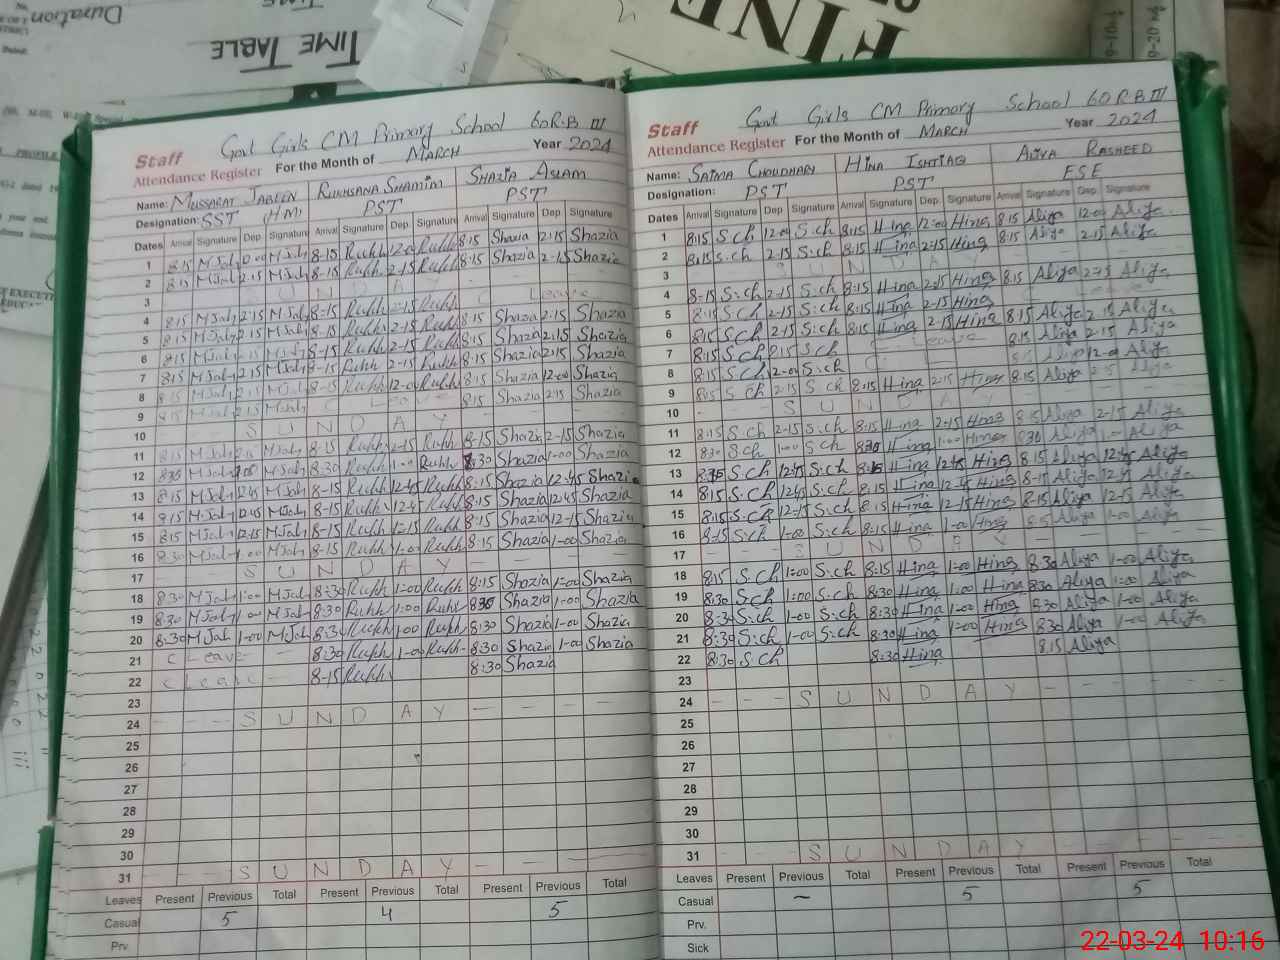 Duration
TIME TABLE
FINE
Govt Girls CM Primary School 60 R.B III
Staff
Attendance Register For the Month of MARCH Year 2024
Name: MUSSARAT JABEEN RUKHSANA SHAMIM SHAZIA ASLAM
Designation: SST (HM) PST PST
Dates Arrival Signature Dep. Signature Arrival Signature Dep. Signature Arrival Signature Dep. Signature
1 8:15 M.Jab 8-15 Rukh 12:00 Rukh 8:15 Shazia 2:15 Shazia
2 8:15 M.Jab 2:15 M.Jab 8-15 Rukh 2-15 Rukh 8:15 Shazia 2-15 Shazia
3 SUNDAY
4 8:15 M.Jab 2:15 M.Jab 8-15 Rukh 2-15 Rukh C Leave
5 8:15 M.Jab 2:15 M.Jab 8-15 Rukh 2-15 Rukh 8:15 Shazia 2:15 Shazia
6 8:15 M.Jab 2:15 M.Jab 8-15 Rukh 2-15 Rukh 8:15 Shazia 2:15 Shazia
7 8:15 M.Jab 2:15 M.Jab 8-15 Rukh 2-15 Rukh 8:15 Shazia 2:15 Shazia
8 8:15 M.Jab M.Jab 8-15 Rukh 12-0 Rukh 8:15 Shazia 12-00 Shazia
9 8:15 M.Jab 2:15 M.Jab C Leave 8:15 Shazia 2:15 Shazia
10 SUNDAY
11 8:15 M.Jab 2:15 M.Jab 8-15 Rukh 2-15 Rukh 8-15 Shazia 2-15 Shazia
12 M.Jab 1:00 M.Jab 8:30 Rukh 1-00 Rukh 8:30 Shazia 1-00 Shazia
13 8:15 M.Jab 12:45 M.Jab 8-15 Rukh 12:45 Rukh 8:15 Shazia 12:45 Shazia
14 8:15 M.Jab 12:45 M.Jab 8-15 Rukh 12:45 Rukh 8:15 Shazia 12:45 Shazia
15 8:15 M.Jab 12:15 M.Jab 8-15 Rukh Rukh 8:15 Shazia 12-15 Shazia
16 8:30 M.Jab 1-00 M.Jab 8-15 Rukh 1-00 Rukh 8:15 Shazia 1-00 Shazia
17 SUNDAY
18 8:30 M.Jab 1:00 M.Jab 8:30 Rukh 1:00 Rukh 8:15 Shazia 1:00 Shazia
19 8:30 M.Jab 1:00 M.Jab 8:30 Rukh 1:00 Rukh 8:30 Shazia 1-00 Shazia
20 8:30 M.Jab 1-00 M.Jab 8:30 Rukh 1:00 Rukh 8:30 Shazia 1-00 Shazia
21 C Leave 8:30 Rukh 1-00 Rukh 8:30 Shazia 1-00 Shazia
22 C Leave 8-15 Rukh 8:30 Shazia
23
24 SUNDAY
25
26
27
28
29
30
31 SUNDAY
Leaves Present Previous Total Present Previous Total Present Previous Total
Casual 5 4 5
Prv.
Govt Girls CM Primary School 60 R.B III
Staff
Attendance Register For the Month of MARCH Year 2024
Name: SAIMA CHOUDHARY HINA ISHTIAQ ALIYA RASHEED
Designation: PST PST ESE
Dates Arrival Signature Dep. Signature Arrival Signature Dep. Signature Arrival Signature Dep. Signature
1 8:15 S.ch 12-00 S.ch 8:15 Hina 12:00 Hina 8:15 Aliya 12-0 Aliya
2 8:15 S.ch 2-15 S.ch 8:15 Hina 2-15 Hina 8:15 Aliya 2-15 Aliya
3 SUNDAY
4 8-15 S.ch 2-15 S.ch 8:15 Hina 2:15 Hina 8:15 Aliya 2-15 Aliya
5 8:15 S.ch 2-15 S.ch 8:15 Hina 2-15 Hina
6 8:15 S.ch 2:15 S.ch 8:15 Hina 2-15 Hina 8:15 Aliya 2-15 Aliya
7 8:15 S.ch 2:15 S.ch C Leave 8:15 Aliya 2-15 Aliya
8 8:15 S.ch 12-0 S.ch Aliya 12-0 Aliya
9 8:15 S.ch 2-15 S.ch 8:15 Hina 2-15 Hina 8:15 Aliya 2-15 Aliya
10 SUNDAY
11 8:15 S.ch 2-15 S.ch 8:15 Hina 2-15 Hina 8:15 Aliya 2-15 Aliya
12 8:30 S.ch 1:00 S.ch 8:30 Hina 1-00 Hina 8:30 Aliya 1-00 Aliya
13 S.ch 12:45 S.ch 8:15 Hina 12:45 Hina 8:15 Aliya 12:45 Aliya
14 8:15 S.ch 12:45 S.ch 8:15 Hina 12:45 Hina 8-15 Aliya 12:45 Aliya
15 8:15 S.ch 12-15 S.ch 8:15 Hina 12-15 Hina 8:15 Aliya 12-15 Aliya
16 8-15 S.ch 1-00 S.ch 8:15 Hina 1-00 Hina 8:15 Aliya 1-00 Aliya
17 SUNDAY
18 8:15 S.ch 1:00 S.ch 8:15 Hina 1-00 Hina 8:30 Aliya 1-00 Aliya
19 8:30 S.ch 1:00 S.ch 8:30 Hina 1-00 Hina 8:30 Aliya 1-00 Aliya
20 8:30 S.ch 1-00 S.ch 8:30 Hina 1-00 Hina 8:30 Aliya 1-00 Aliya
21 8:30 S.ch 1-00 S.ch 8:30 Hina 1-00 Hina 8:30 Aliya 1-00 Aliya
22 8:30 S.ch 8:30 Hina 8:15 Aliya
23
24 SUNDAY
25
26
27
28
29
30
31 SUNDAY
Leaves Present Previous Total Present Previous Total Present Previous Total
Casual – 5 5
Prv.
Sick
22-03-24 10:16